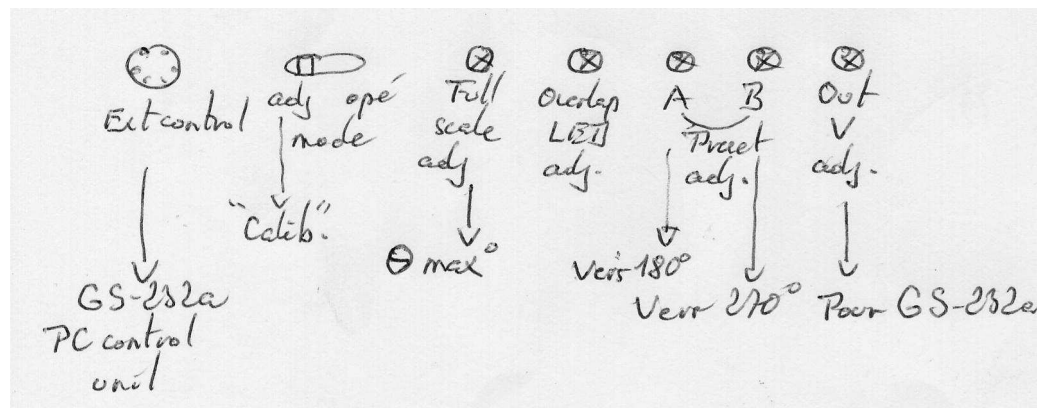 Ext control
adj opé
mode
Full
scale
adj
Overlap
LED
adj.
A B
adj.
Out
V
adj.
"Calib."
θ max°
Vers 180°
Vers 270°
Pour GS-232a
GS-232a
PC control
unit